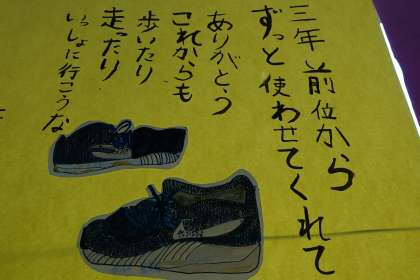 三年前位から
ずっと使わせてくれて
ありがとう
これからも
歩いたり
走ったり
いっしょに行こうな